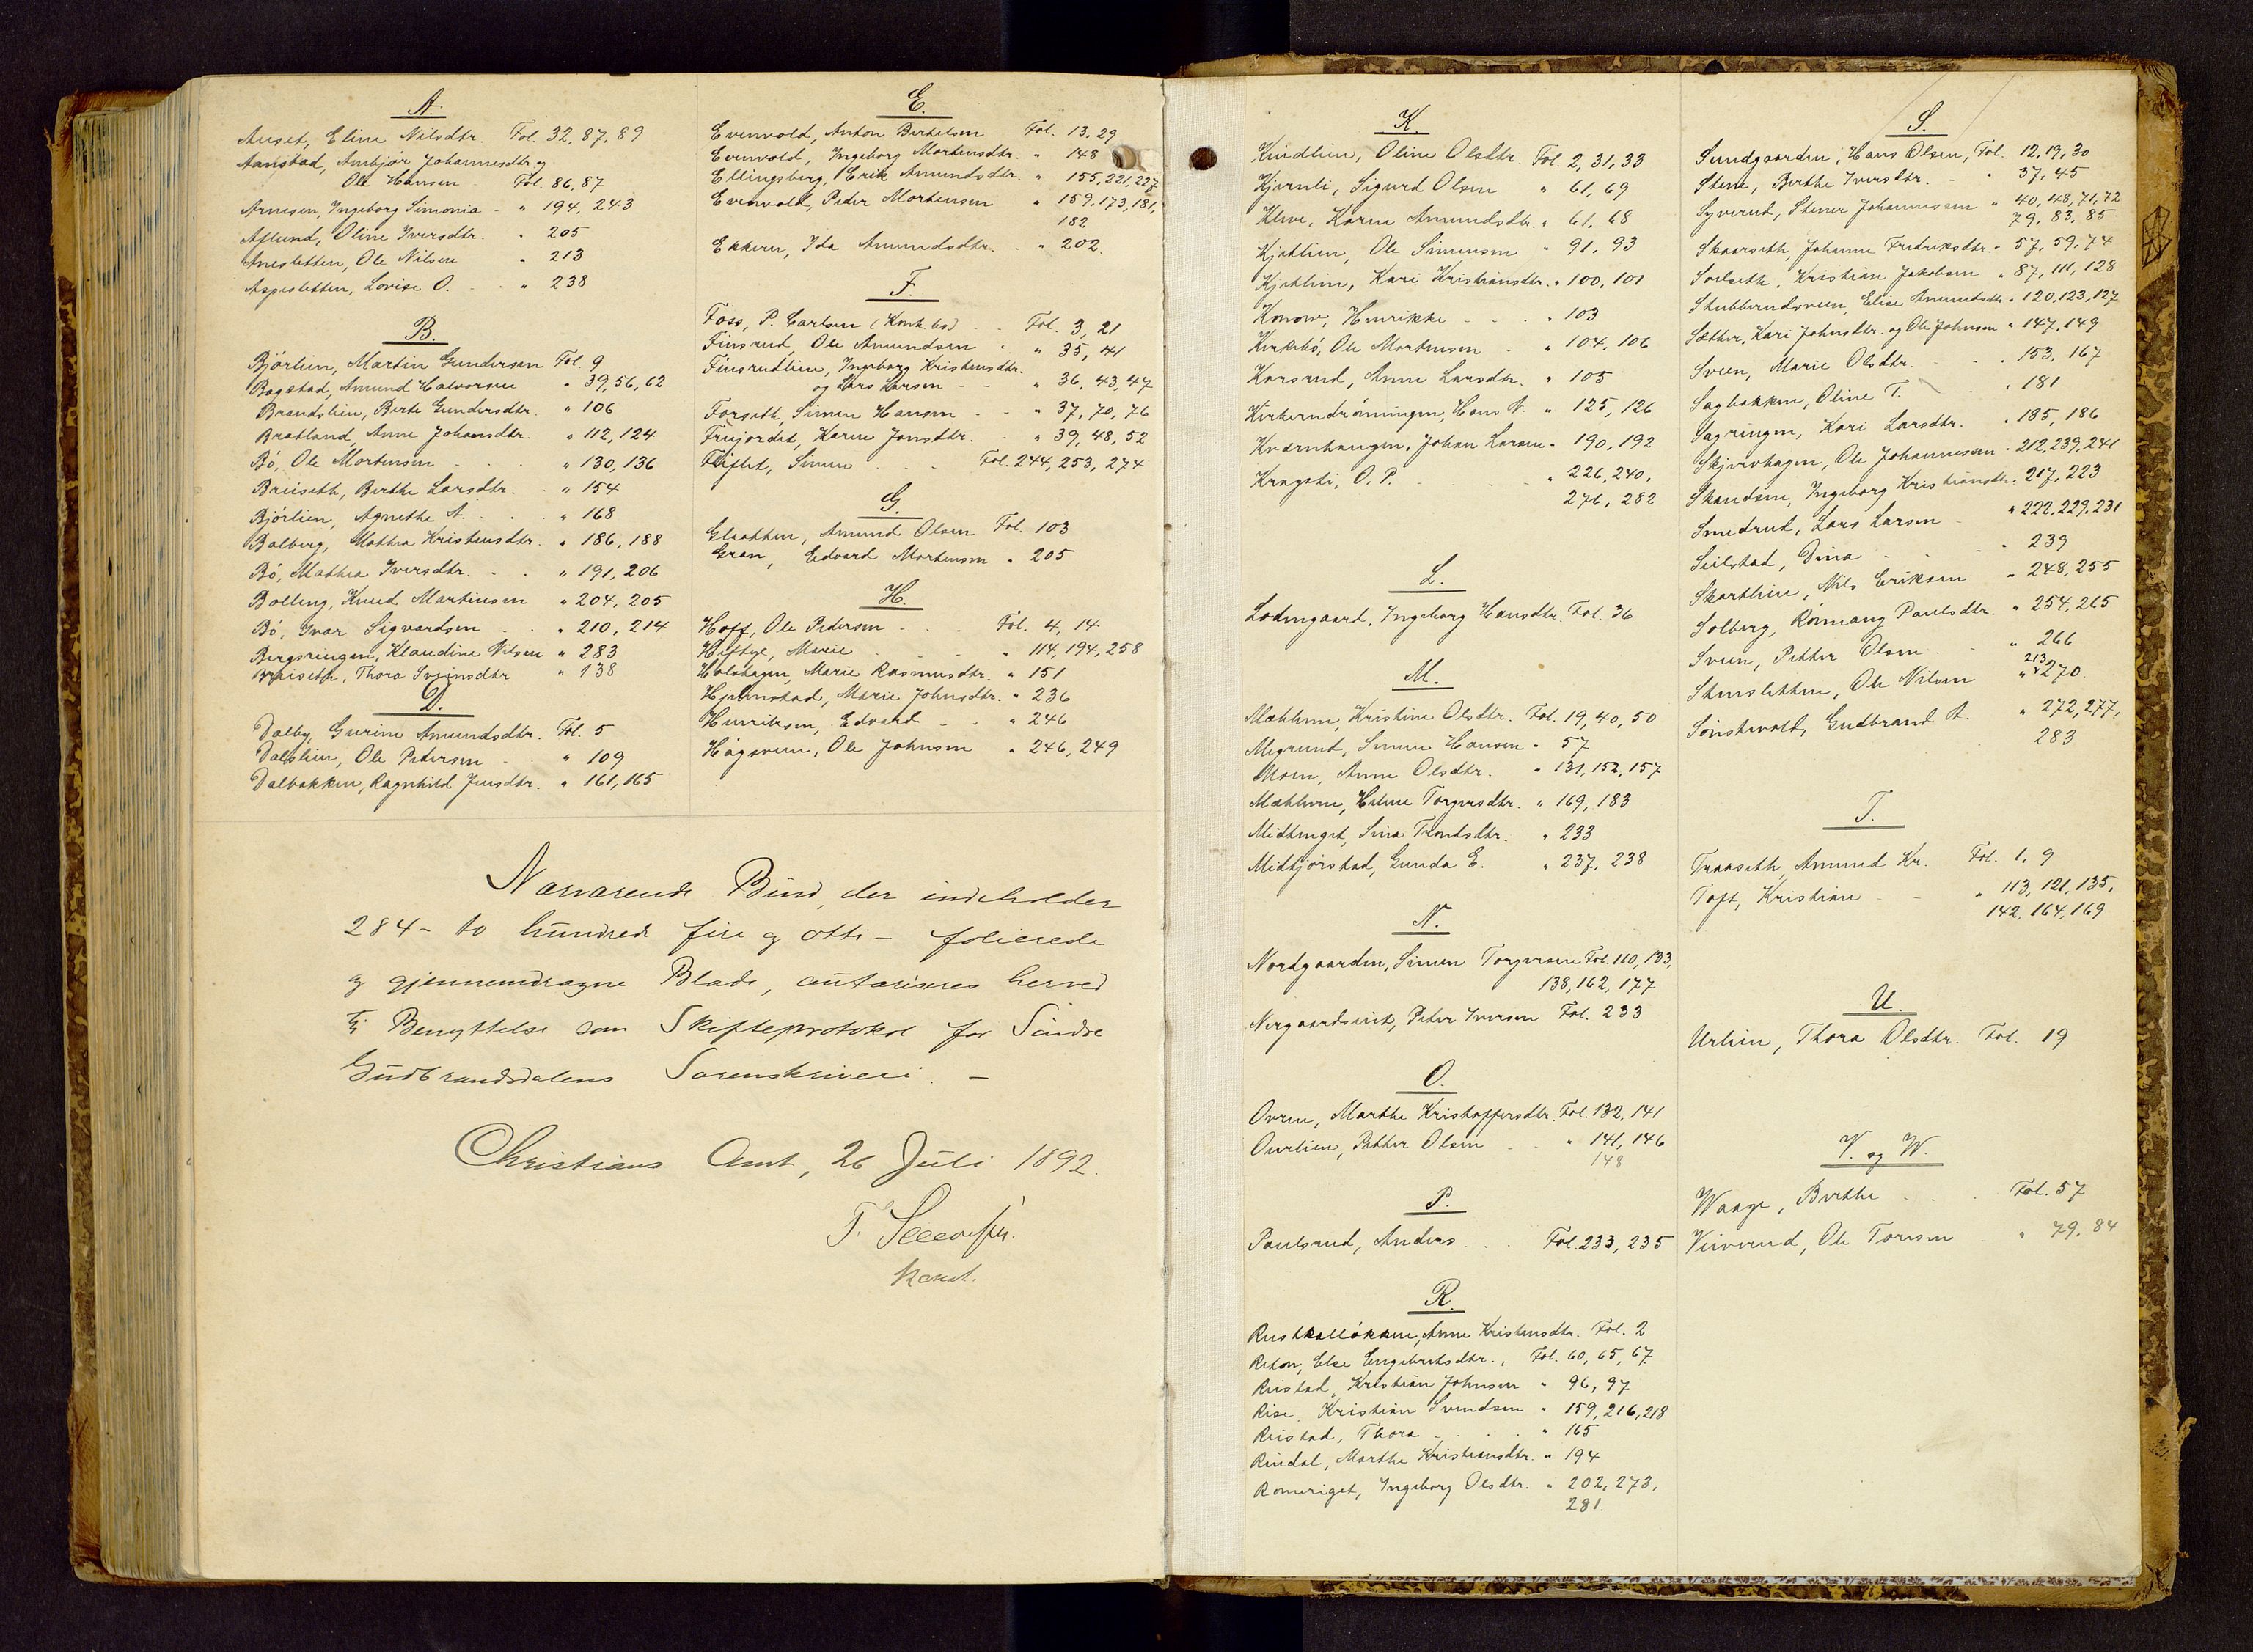 A.
Auset, Eline Nilsdtr. Fol. 32, 87, 89
Aanstad, Ambjør Johannesdtr. og
Ole Hansen - Fol. 86, 87
Arnesen, Ingeborg Simonia - " 194, 243
Aflund, Oline Iversdtr. " 205
Anesletten, Ole Nilsen " 213
Aspesletten, Lovise O. - - " 238
B.
Bjørlien, Martin Gundersen Fol. 9
Bogstad, Amund Halvorsen " 39, 56, 62
Brandslien, Berte Gundersdtr. " 106
Bratland, Anne Johansdtr. " 112, 124
Bø, Ole Mortensen - . . " 130, 136
Breiseth, Berthe Larsdtr. . " 154
Bjørlien, Agnethe A. - . . " 168
Balberg, Mathea Kristensdtr. " 186, 188
Bø, Mathea Iversdtr. - . " 191, 206
Bolling, Knud Martinsen " 204, 205
Bø, Ivar Sigvardsen . . " 210, 214
Bergsringen, Klaudine Nilsen " 283
Breiseth, Thora Svensdtr " 138
D.
Dalby, Gurine Amundsdtr. Fol. 5
Dalslien, Ole Pedersen - " 109
Dalbakken, Ragnhild Jensdtr. " 161, 165
E.
Evenvold, Anton Bertelsen Fol. 13, 29
Evenvold, Ingeborg Mortensdtr. " 148
Ellingsberg, Erik Amundsdtr. " 155, 221, 227
Evenvold, Peder Mortensen " 159, 173, 181,
182
Ekkern, Ida Amundsdtr. . " 202.
F.
Foss, P. Carlsen (Konk. bo) - - Fol. 3, 21
Finsrud, Ole Amundsen . " 35, 41
Finsrudlien, Ingeborg Kristensdtr.
og Lars Larsen - - " 36, 43, 47
Forseth, Simen Hansen - - " 37, 70, 76
Frujordet, Karen Jensdtr. . " 39, 48, 52
Fliflet, Simen . . Fol. 244, 253, 274
G.
Glaatten, Amund Olsen Fol. 103
Gran, Edvard Mortensen " 205
H.
Hoff, Ole Pedersen - . . Fol. 4, 14
Heftye, Marie . . . " 114, 194, 258
Holshagen, Marie Rasmusdtr. " 151
Hjelmstad, Marie Johnsdtr. " 236
Henriksen, Edvard - . " 246
Hågåsveen, Ole Johnsen " 246, 249
Nærværende Bind, der indeholder
284 - to hundrede fire og otti - folierede
og gjennemdragne Blade, autoriseres herved
til Benyttelse som Skifteprotokol for Søndre
Gudbrandsdalens Sorenskriveri. -
Christians Amt, 26 Juli 1892.
Konst.
K.
Kindlien, Oline Olsdtr. Fol. 2, 31, 33
Kjernli, Sigurd Olsen " 61, 69
Kleve, Karen Amundsdtr. " 61, 68
Kjetlien, Ole Simensen " 91, 93
Kjetlien, Kari Kristiansdtr. " 100, 101
Konow, Henrikke - - . " 103
Kirkebø, Ole Mortensen - " 104, 106
Korsrud, Anne Larsdtr. " 105
Kirkerudrønningen, Hans N. " 125, 126
Kværnhaugen, Johan Larsen " 190, 192
Kragsti, O. P. . . . " 226, 240,
276, 282
L.
Lodengaard, Ingeborg Hansdtr. Fol. 36
M.
Mæhlum, Kristine Olsdtr. Fol. 19, 40, 50
Megrund, Simen Hansen " 57
Moen, Anne Olsdtr. " 131, 152, 157
Mæhlum, Helene Torgersdtr. " 169, 183
Midtenget, Sina Trondsdtr. " 233
Midtjørstad, Gunda E. " 237, 238
N.
Nordgaarden, Simen Torgersen Fol. 110, 133,
138, 162, 177
Nergaardseiet, Peter Iversen Fol. 233
O.
Overn, Marthe Kristoffersdtr. Fol. 132, 141
Overlien, Petter Olsen - " 141, 146
148
P.
Paulsrud, Anders . . . Fol. 233, 235
R.
Rustkalløkken, Anne Kristensdtr. Fol. 2
Reton, Else Engebretsdtr., Fol. 60, 65, 67
Ruistad, Kristian Johnsen " 96, 97
Rise, Kristian Svendsen " 159, 216, 218
Ruistad, Thora - . . . " 165
Rindal, Marthe Kristiansdtr. " 194
Romeriget, Ingeborg Olsdtr. " 202, 273,
281.
S.
Sundgaarden, Hans Olsen, Fol. 12, 19, 30
Stene, Berthe Iversdtr. - " 37, 45
Syverud, Stener Johannessen " 40, 48, 71, 72
79, 83, 85
Skaarseth, Johanne Fredriksdtr. " 57, 59, 74
Sorlseth, Kristian Jakobsen " 87, 111, 128
Stubberudsveen, Elise Amundsdtr. " 120, 123, 127
Sætter, Kari Johnsdtr. og Ole Johnsen " 147, 149
Sveen, Marie Olsdtr. . . " 153, 167
Sagbakken, Oline T. - . " 181
Sagringen, Kari Larsdtr. " 185, 186
Skjervhagen, Ole Johannessen " 212, 239, 241
Skandsen, Ingeborg Kristiansdtr. " 217, 223
Smedrud, Lars Larsen - " 222, 229, 231
Seilstad, Dina - . - " 239
Skartlien, Nils Eriksen " 248, 255
Solberg, Rønnaug Paulsdtr. " 254, 265
Sveen, Petter Olsen . . " 266
213
Stensletten, Ole Nilsen " 270.
Sønstevold, Gudbrand A. " 272, 277,
283
T.
Traaseth, Amund Kr. Fol. 1, 9
Toft, Kristian - - " 113, 121, 135,
142, 164, 169
U.
Urlien, Thora Olsdtr. Fol. 19
V. og W.
Waage, Berthe . . . Fol. 57
Veiverud, Ole Toresen - " 79, 84